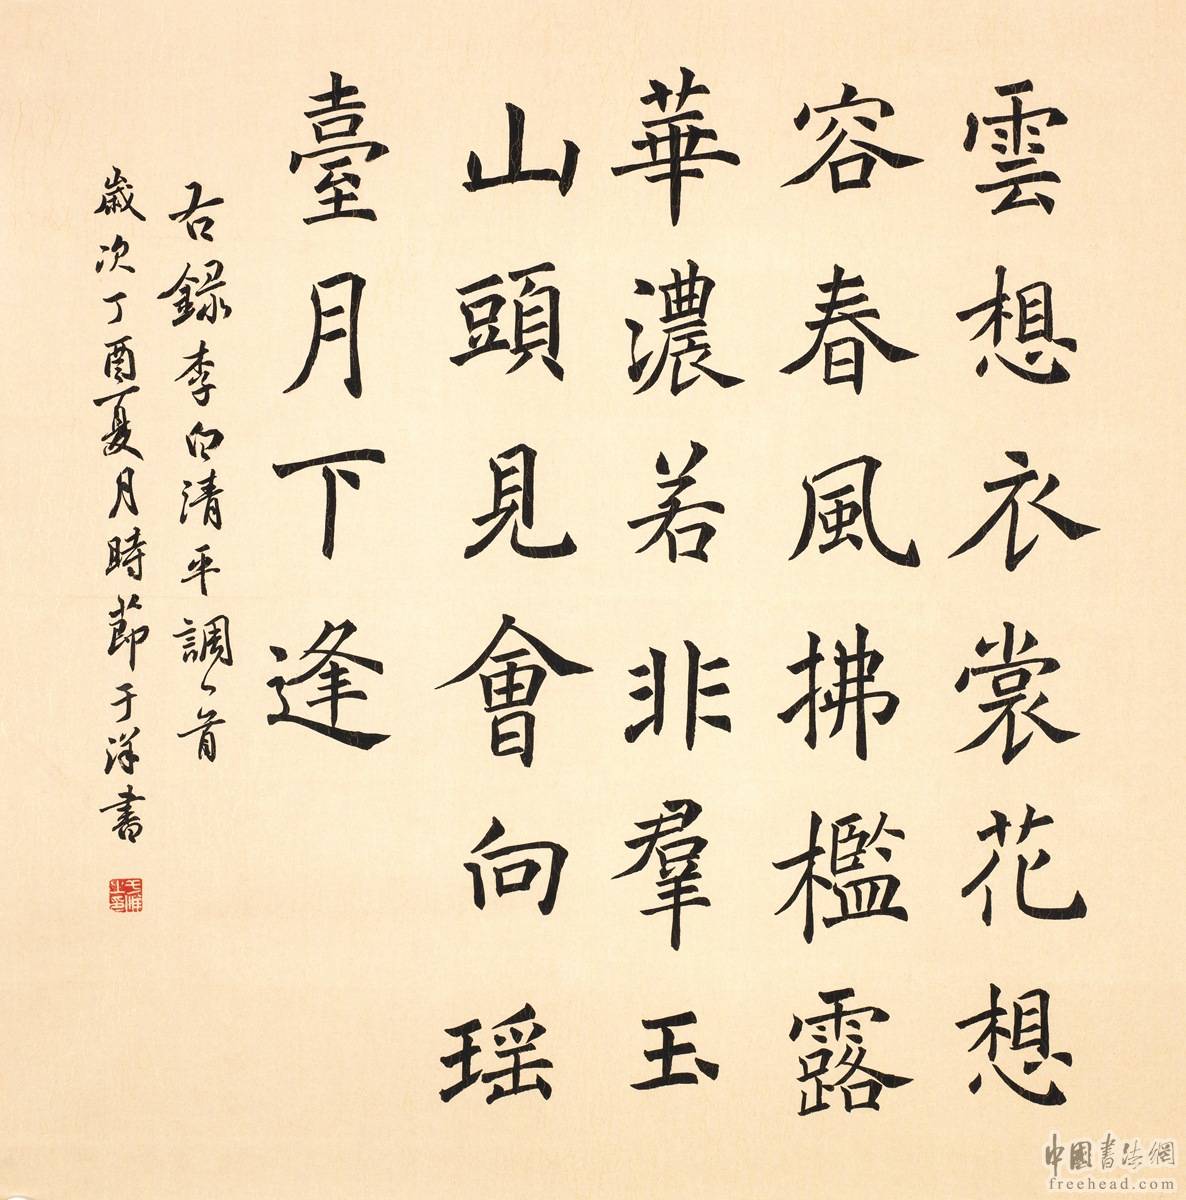 雲想衣裳花想
容春風拂檻露
華濃若非羣玉
山頭見會向瑶
臺月下逢
右録李白清平調一首
歲次丁酉夏月時節于洋書
中國書法網
freehead.com